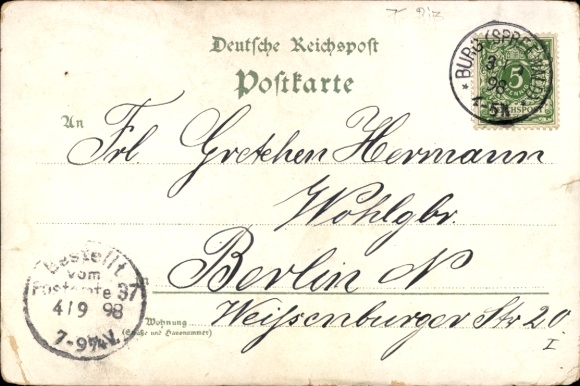 Deutsche Reichspost
Postkarte
An
Frl. Gretchen Hermann
Wohlgbr.
Berlin N
Wohnung
(Straße und Hausnummer)
Weißenburger Str 20
I
BURG (SPREEWALD)
98
7-8N
5
REICHSPOST
Bestellt
vom
Postamte 37
4/9 98
7-9¼V.